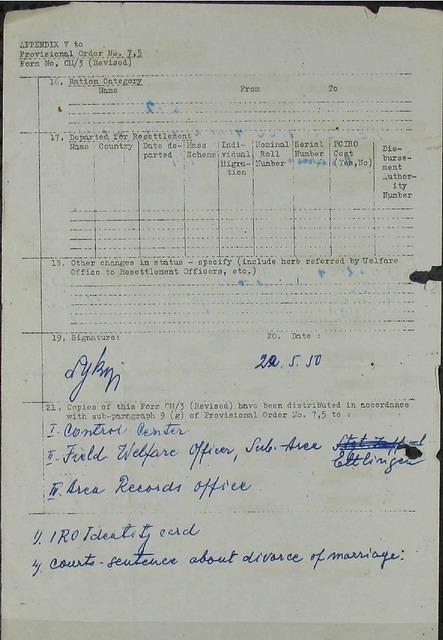 APPENDIX V to
Provisional Order No. 7,5
Form No. CM/3 (Revised)
16. Ration Category
Name From To
17. Departed for Resettlement
Name Country Date departed Mass Scheme Individual Migration Nominal Roll Number Serial Number PCIRO Cost (Yes,No) Disbursement Authority Number
18. Other changes in status - specify (include here referred by Welfare
Office to Resettlement Officers, etc.)
19. Signature: 20. Date :
22. 5. 50
21. Copies of this Form CM/3 (Revised) have been distributed in accordance
with sub-paragraph 9 (g) of Provisional Order No. 7,5 to :
I. Control Center
II. Field Welfare Officer, Sub-Area
Ettlingen
III. Area Records office
1/. IRO Identity card
2/. Courts-sentence about divorce of marriage: